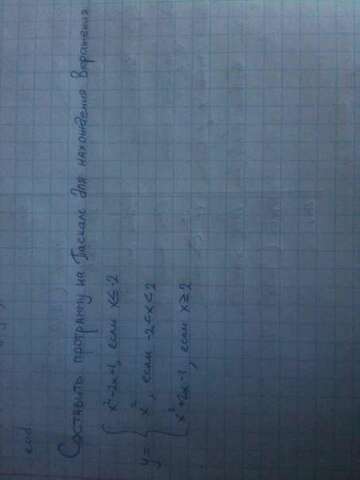 Составить программу на Паскале для нахождения выражения
x⁴-2x-1, если x≤-2
y= { x², если -2<x<2
x²+2x-1, если x≥2